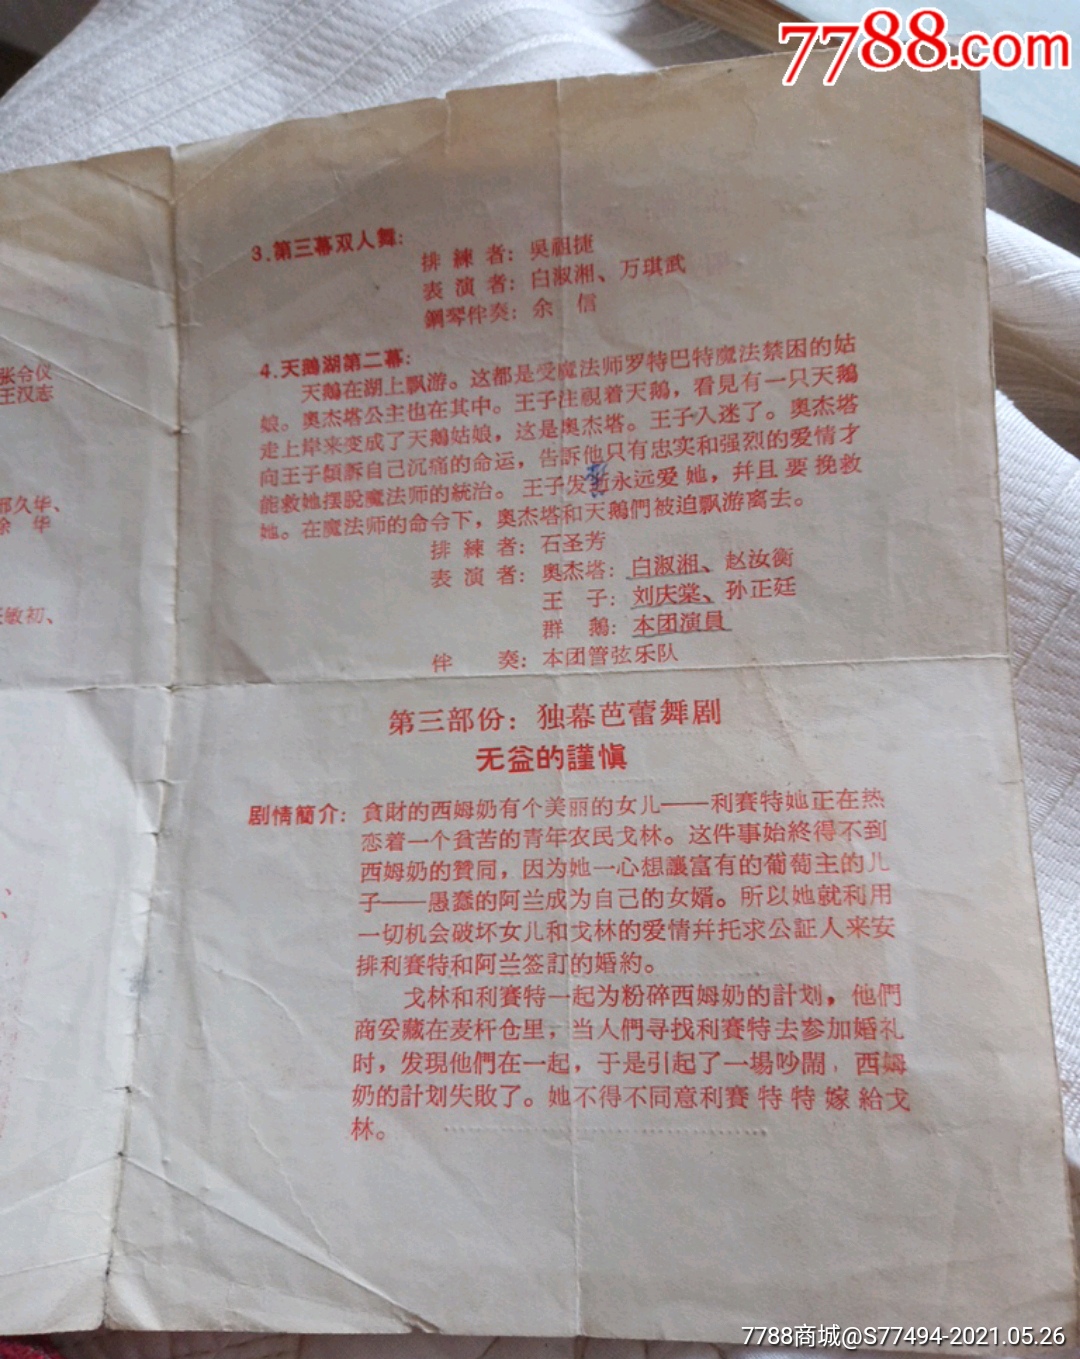 7788.com
3.第三幕双人舞:
排練者: 吳祖捷
表演者: 白淑湘、万琪武
鋼琴伴奏: 余信
4.天鵝湖第二幕:
天鵝在湖上飘游。这都是受魔法师罗特巴特魔法禁困的姑
娘。奥杰塔公主也在其中。王子注視着天鵝, 看見有一只天鵝
走上岸来变成了天鵝姑娘, 这是奥杰塔。王子入迷了。奥杰塔
向王子傾訴自己沉痛的命运, 告訴他只有忠实和强烈的爱情才
能救她摆脱魔法师的統治。王子发誓永远爱她, 幷且要挽救
她。在魔法师的命令下, 奥杰塔和天鵝們被迫飘游离去。
排練者: 石圣芳
表演者: 奥杰塔: 白淑湘、赵汝衡
王子: 刘庆棠、孙正廷
群鵝: 本团演員
伴奏: 本团管弦乐队
张令仪
王汉志
邢久华、
余华
敏初、
第三部份: 独幕芭蕾舞剧
无益的謹愼
剧情簡介: 貪財的西姆奶有个美丽的女儿——利賽特她正在热
恋着一个貧苦的青年农民戈林。这件事始終得不到
西姆奶的贊同, 因为她一心想讓富有的葡萄主的儿
子——愚蠢的阿兰成为自己的女婿。所以她就利用
一切机会破坏女儿和戈林的爱情幷托求公証人来安
排利賽特和阿兰签訂的婚約。
戈林和利賽特一起为粉碎西姆奶的計划, 他們
商妥藏在麦杆仓里, 当人們寻找利賽特去参加婚礼
时, 发現他們在一起, 于是引起了一場吵鬧, 西姆
奶的計划失敗了。她不得不同意利賽特特嫁給戈
林。
7788商城@S77494-2021.05.26